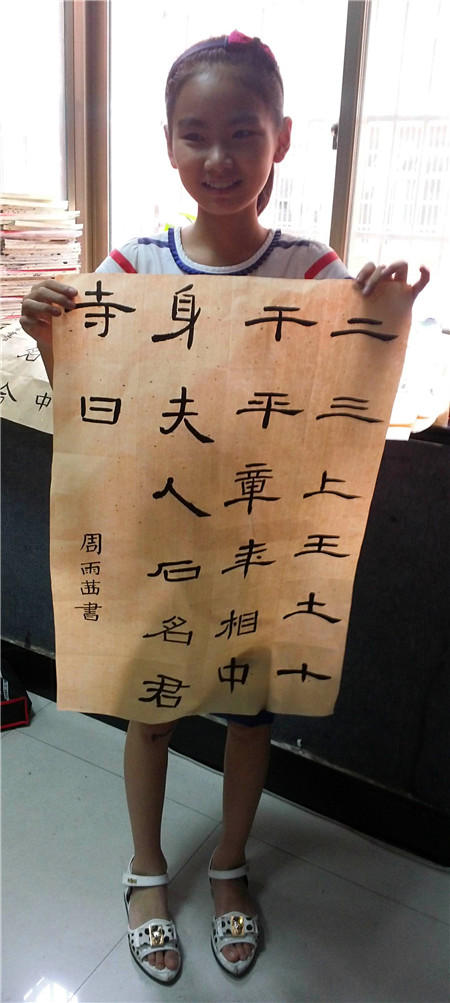 二三上王土十
干平章年相中
身夫人石名君
寺曰
周雨茜書
中